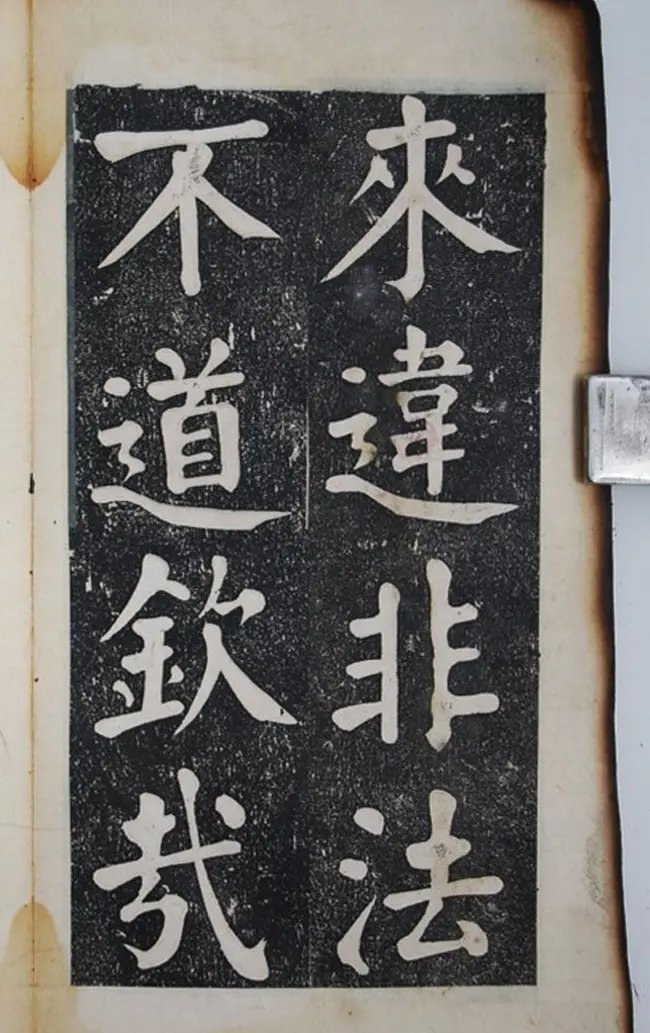 來違非法
不道欽哉